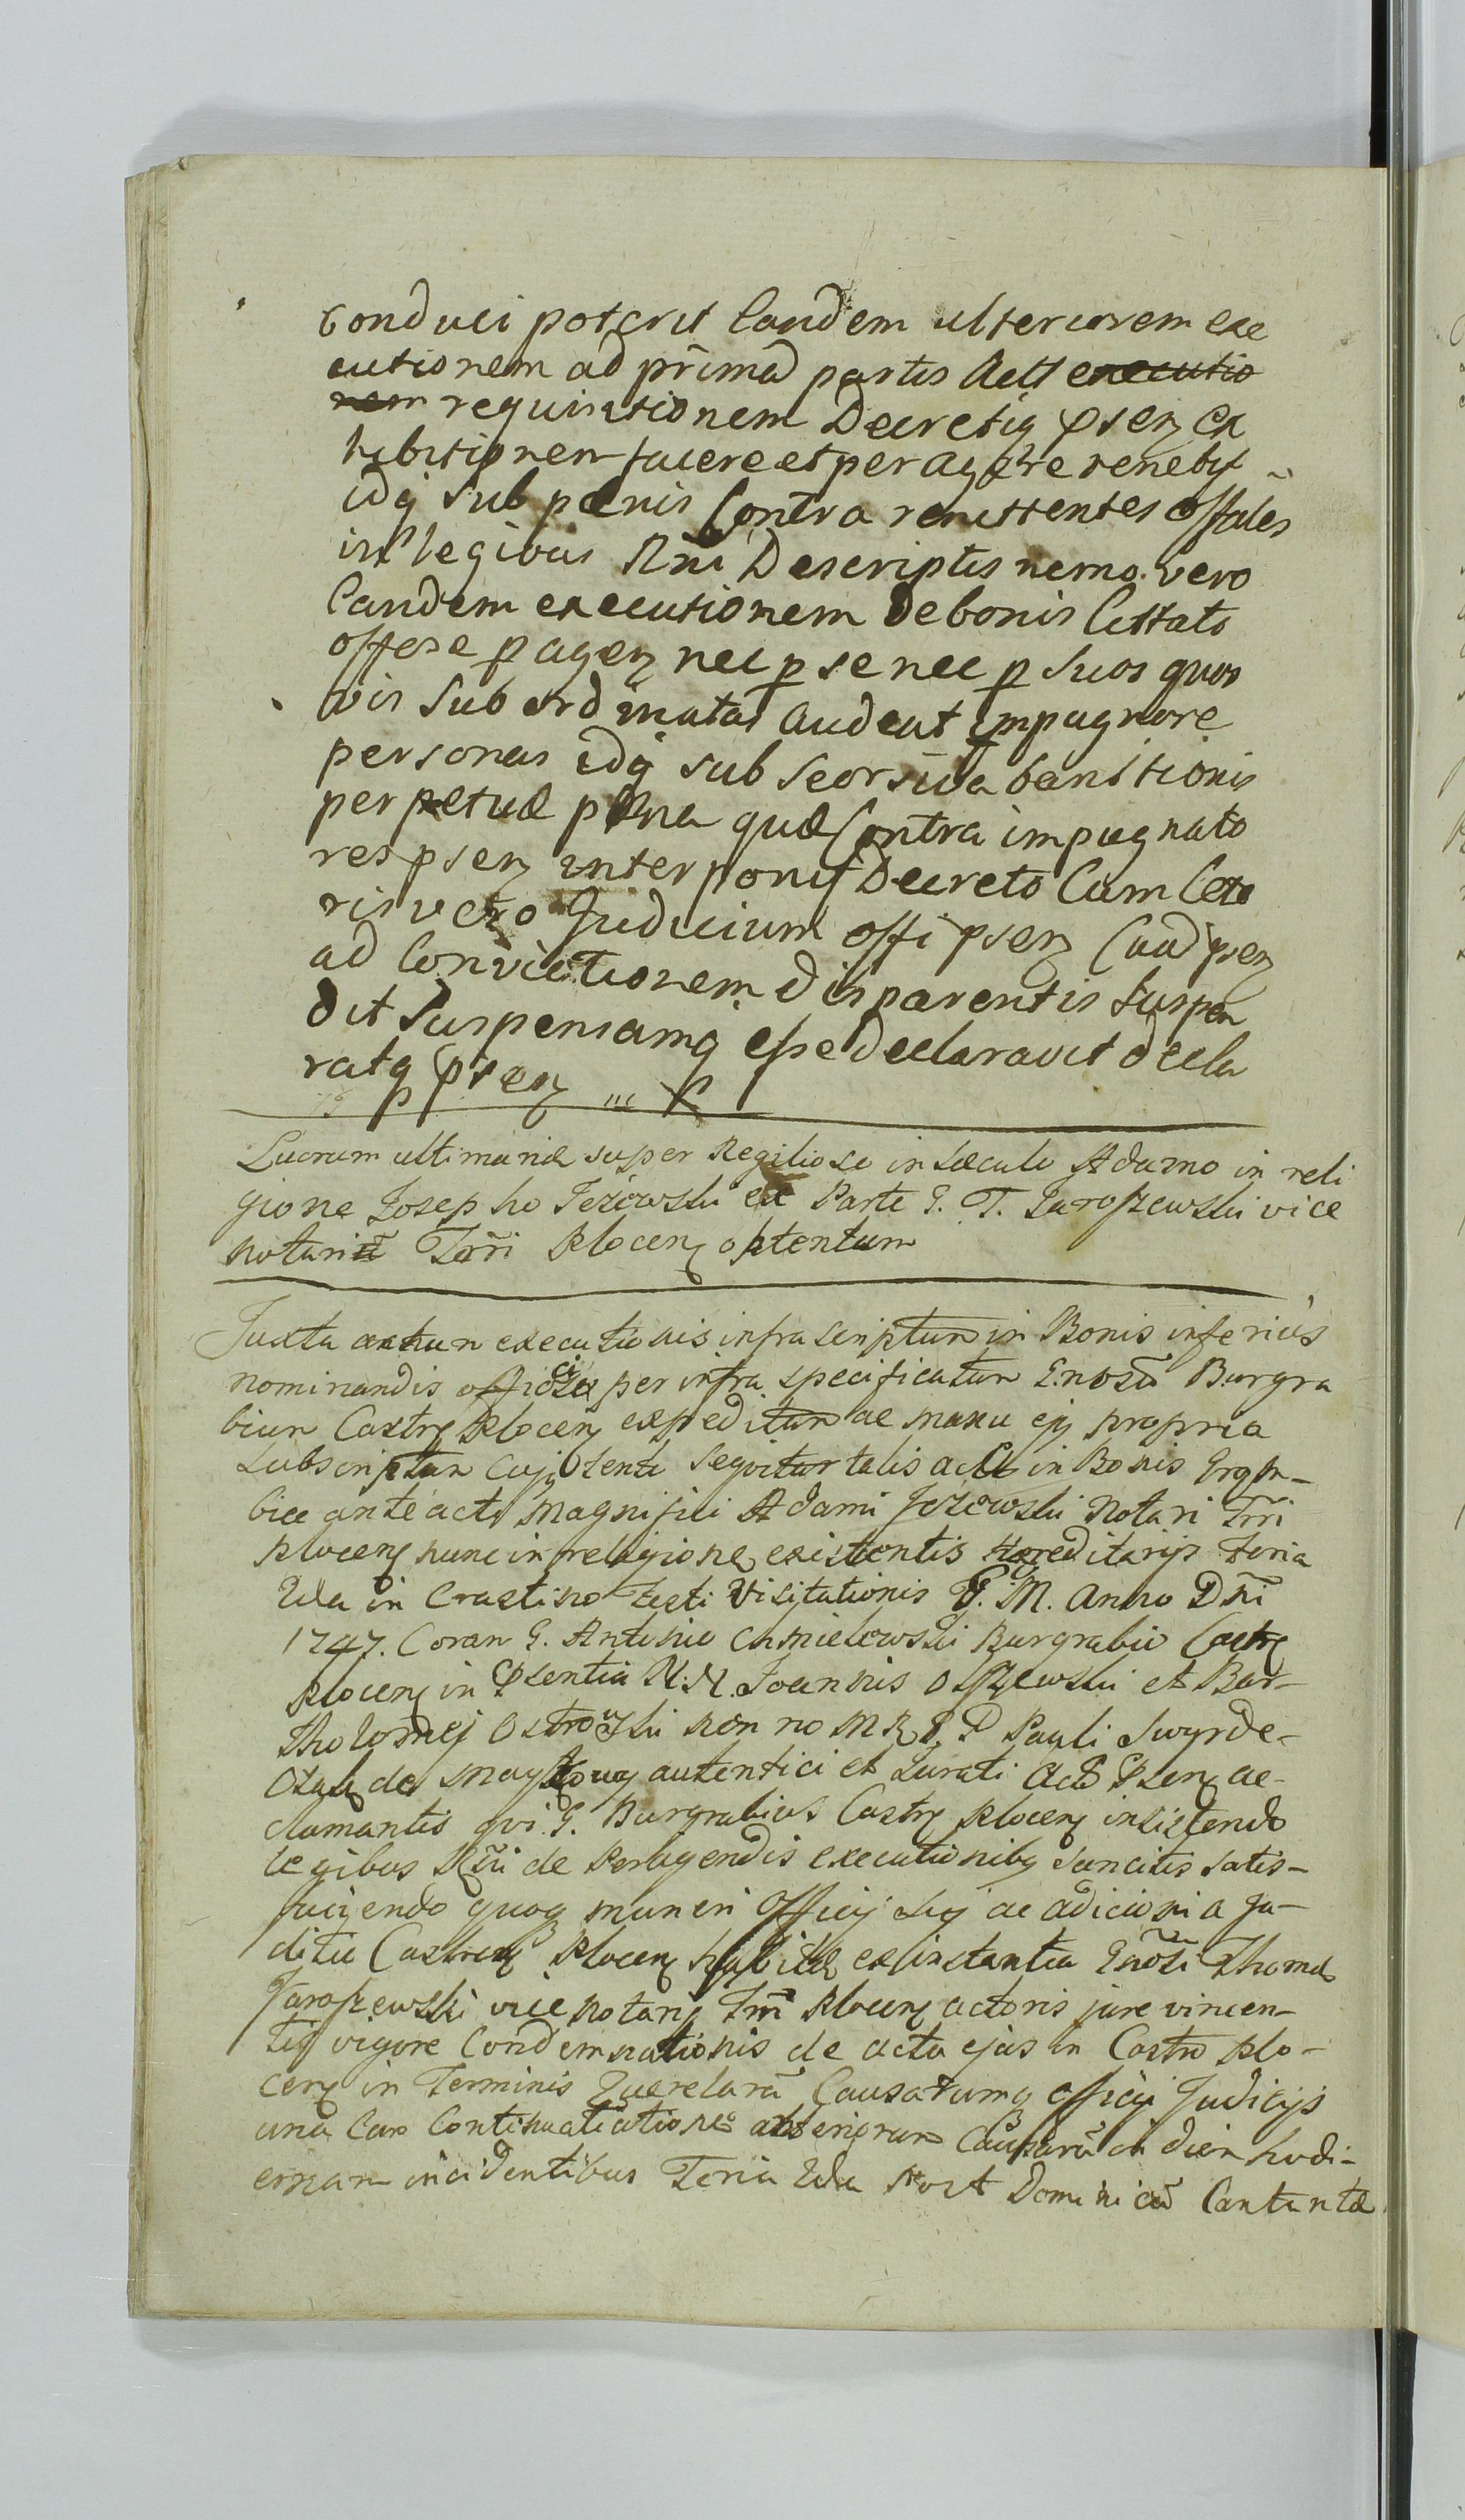 conduci poterit Eandem ulteriorem exe
cutionem ad primā partis Actt executio
nem requisitionem Decretiq psen ex
hibitionem facere et peragere tenebit
idq sub pœnis Contra renittentes offāles
in legibus Rni Descriptis nemo vero
Eandem executionem de bonis Cittato
offose pagen nec p se nec p suos quos
vis subordinatas audeat impugnare
personas idq sub seorsiva banitionis
perpetuæ pœna quæ Contra impugnato
res psen interponit Decreto Cum Cete
ris vero Judicium offi psen Cau psen
ad Convictionem disparentis suspen
dit suspensamq esse declaravit decla
ratq psen
Lucrum ultimariæ super Regilioso in sæculo Adamo in reli
gione Josepho Jeżewski ex Parte G. T. Jaroszewski vice
notarii Terri Plocen optentum
Juxta actum executionis infra scriptum in Bonis inferius
nominandis per infra specificatum Gnosū Burgra
bium Castr Plocen expeditum ac manu ejq propria
subscriptum Cujq tenor seqvitur talis actt in Bonis
vice ante acti Magnifici Adami Jezewski Notari Trri
Plocen nunc in religione existentis Hæreditarijs Feria
2da in Crastino Festi Visitationis B. M. Anno Dni
1747. Coram G. Antonio Chmielewski Burgrabio Castr
Plocen in Psentia N. N. Joannis Olszewski et Bar-
tholomej Ostrowski nec no M R P. D Pauli
de autentici et Jurati Psen ac-
clamantis qvi G. Burgrabius Castr Plocen insistendo
legibus Rni de Peragendis executionibq sancitis satis-
faciendo quoq muneri Officij sui ac adicioni a Ju-
ditio Castren Plocen habitæ ex instantia Gnosi Thomæ
Jaroszewski vice Notarij Trri Plocen actoris jure vincen-
tis vigore Condemnationis de acta ejus in Castro Plo-
cen in Terminis Querelarū Causarumq officij Judicijs
una Cum Continuatiatione anteriorum Causarū in diem hodi-
ernam incidentibus Feria 2da Post Dominicā Cantatæ